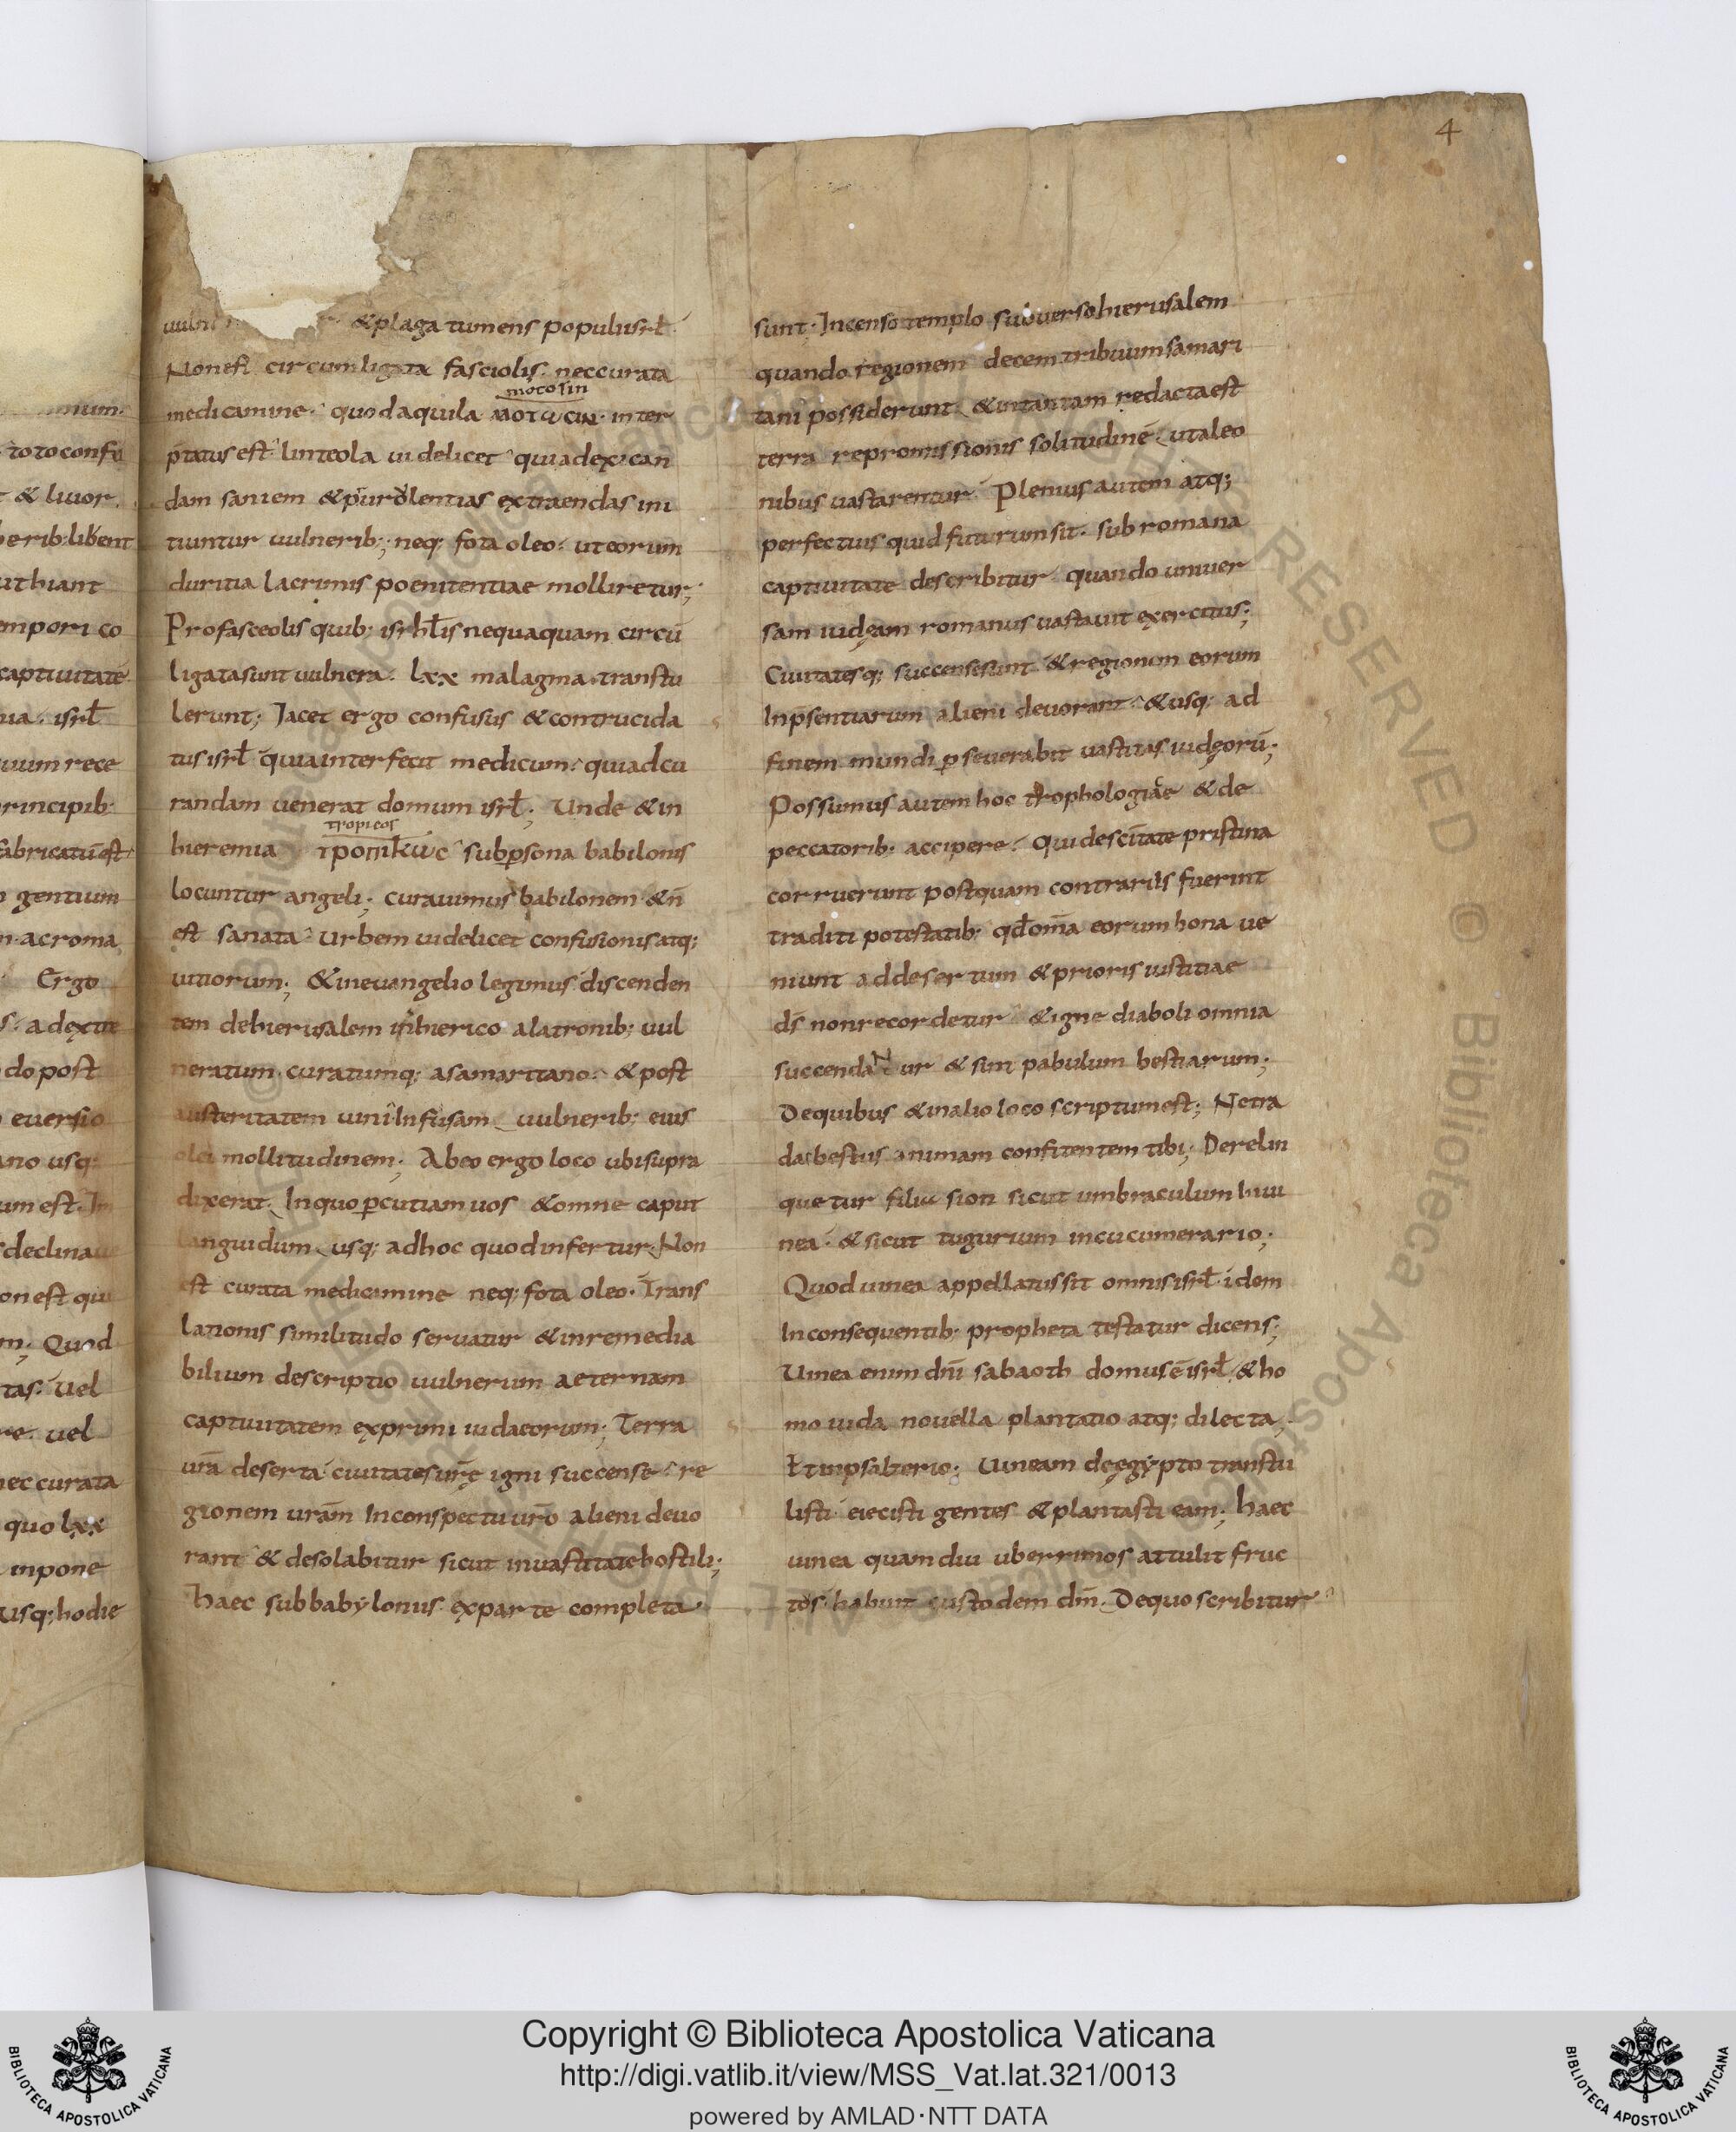 4
mium.
toto confu
& livor.
erib: libent
ut hiant
mpori co
captivitatē
isrł
uum rece
rincipib:
fabricatū est
gentium
ac roma
Ergo
a dextre
do post
eversio
ano usq:
um est. In
declina
on est qui
m; Quod
tas. Vel
re. vel
nec curata
quo lxx
inpone
usq; hodie
& plaga tumens populi isrł.
Non est circumligata fasciolis. nec curata
mocosin
medicamine. quod aquila ΜΟΤωϹΙΝ. inter
p̄tatus est linteola videlicet quia dexican
dam saniem & purolentias extraendas ini
tiuntur vulnerib; neq; fota oleo. ut eorum
duritia lacrimis poenitentiae molliretur;
Pro fasceolis quib; isrhl̄is nequaquam circū
ligata sunt vulnera. lxx malagma transtu
lerunt; Jacet ergo confusus & contrucida
tus isrł quia interfecit medicum. qui ad cu
randam venerat domum isrł; Unde & in
tropicos
hieremia τροπικως sub p̱sona babilonis
locuntur angeli; curavimus babilonem & n̄
est sanata. Urbem videlicet confusionis atq;
vitiorum; & in evangelio legimus discenden
tem de hierusalem in hierico a latronib; vul
neratum curatumq; a samaritano. & post
austeritatem vini infusam vulnerib; eius
olei mollitudinem; Ab eo ergo loco ubi supra
dixerat. In quo p̱cutiam vos & omne caput
languidum usq; ad hoc quod infertur. Non
est curata medicamine neq; fota oleo. Trans
lationis similitudo servatur & in remedia
bilium descriptio vulnerum aeternam
captivitatem exprimi iudaeorum; Terra
vr̄a deserta civitates vr̄ę igni succensę. re
gionem vr̄am In conspectu vr̄o alieni devo
rant & desolabitur sicut in vastitate hostili;
haec sub babylonis ex parte completa
sunt. Incenso templo subverso hierusalem
quando regionem decem tribuum samari
tani possiderunt. & in tantam redacta est
terra repromissionis solitudinē. ut a leo
nibus vastarentur. Plenius autem atq;
perfectius quid futurum sit. sub romana
captivitate describitur quando univer
sam iudęam romanus vastavit exercitus;
Civitatesq; succense sunt & regionem eorum
In p̄sentiarum alieni devorant. & usq; ad
finem mundi p̱severabit vastitas iudęorū;
Possumus autem hoc trophologiae & de
peccatorib: accipere. Qui de scitate pristina
corruerunt postquam contrariis fuerint
traditi potestatib: qd̄ om̄ia eorum bona ve
niunt ad desertum & prioris iustitiae
d̄s non recordetur & igne diaboli omnia
succendaNtur & sint pabulum bestiarum;
De quibus & in alio loco scriptum est; Ne tra
das bestiis animam confitentem tibi; Derelin
quetur filia sion sicut umbraculum in vi
nea. & sicut tugurium in cucumerario;
Quod vinea appellatus sit omnis isrł. idem
In consequentib: propheta testatur dicens;
Vinea enim dn̄i sabaoth domus ē isrł. & ho
mo iuda novella plantatio atq; dilecta;
Et in psalterio; Vineam de ęgypto transtu
listi eiecisti gentes & plantasti eam; haec
vinea quamdiu uberrimos attulit fruc
tos. habuit custodem dn̄m. De quo scribitur
Copyright © Biblioteca Apostolica Vaticana
http://digi.vatlib.it/view/MSS_Vat.lat.321/0013
powered by AMLAD·NTT DATA
BIBLIOTECA APOSTOLICA VATICANA
BIBLIOTECA APOSTOLICA VATICANA